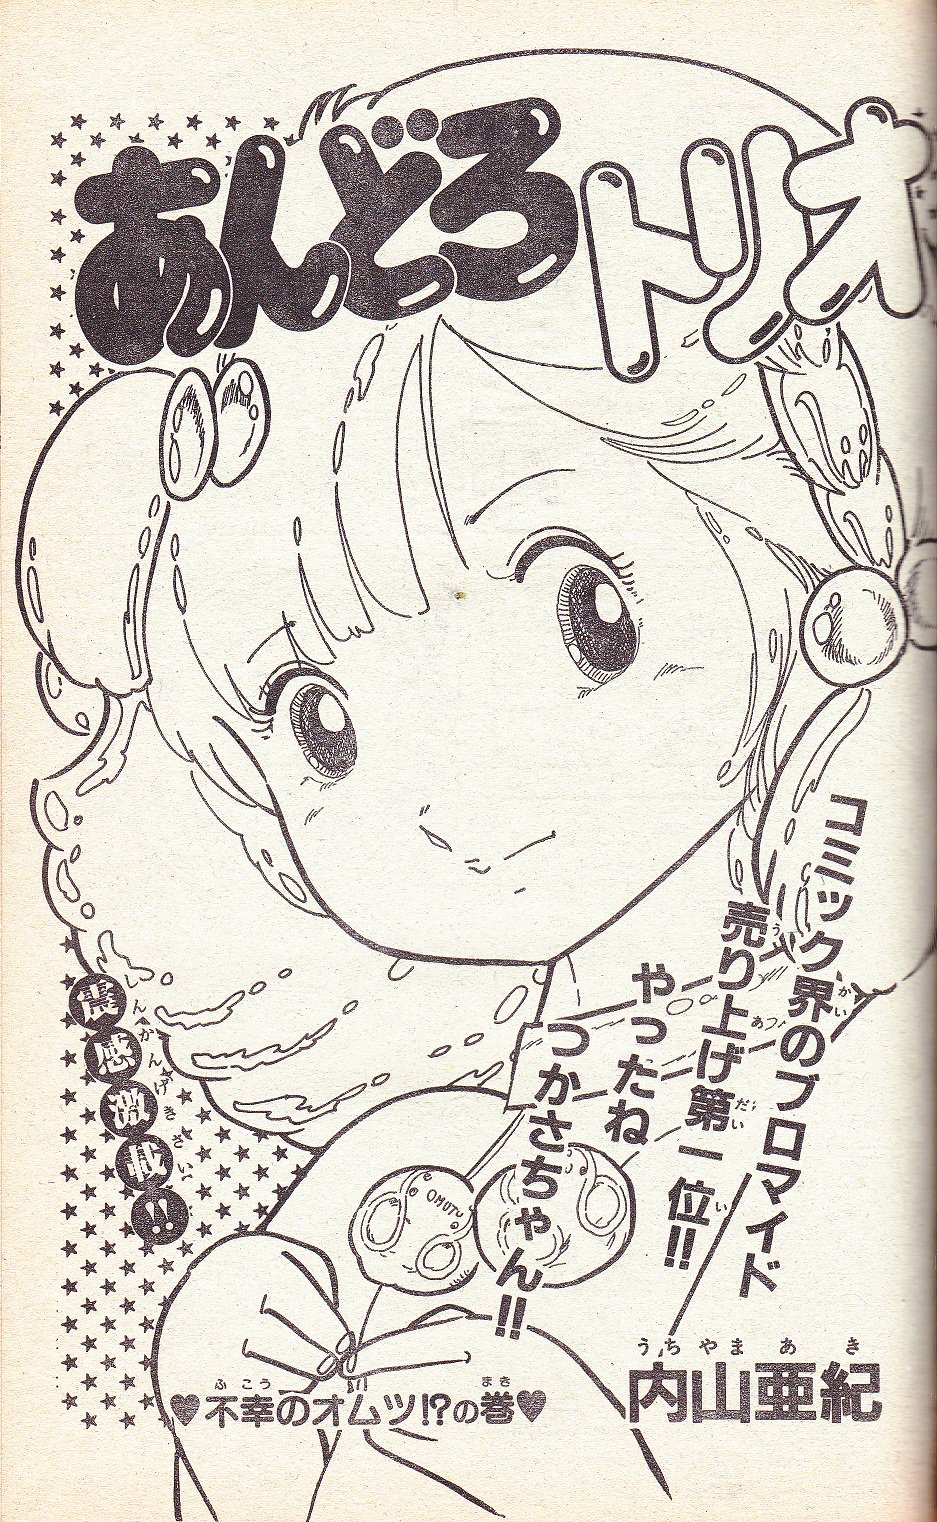 あんどろトリオ
コミック界のブロマイド
売り上げ第一位!!
やったね
つかさちゃん!!
震感激載!!
OMUTU
うちやまあき
内山亜紀
♥不幸のオムツ!?の巻♥